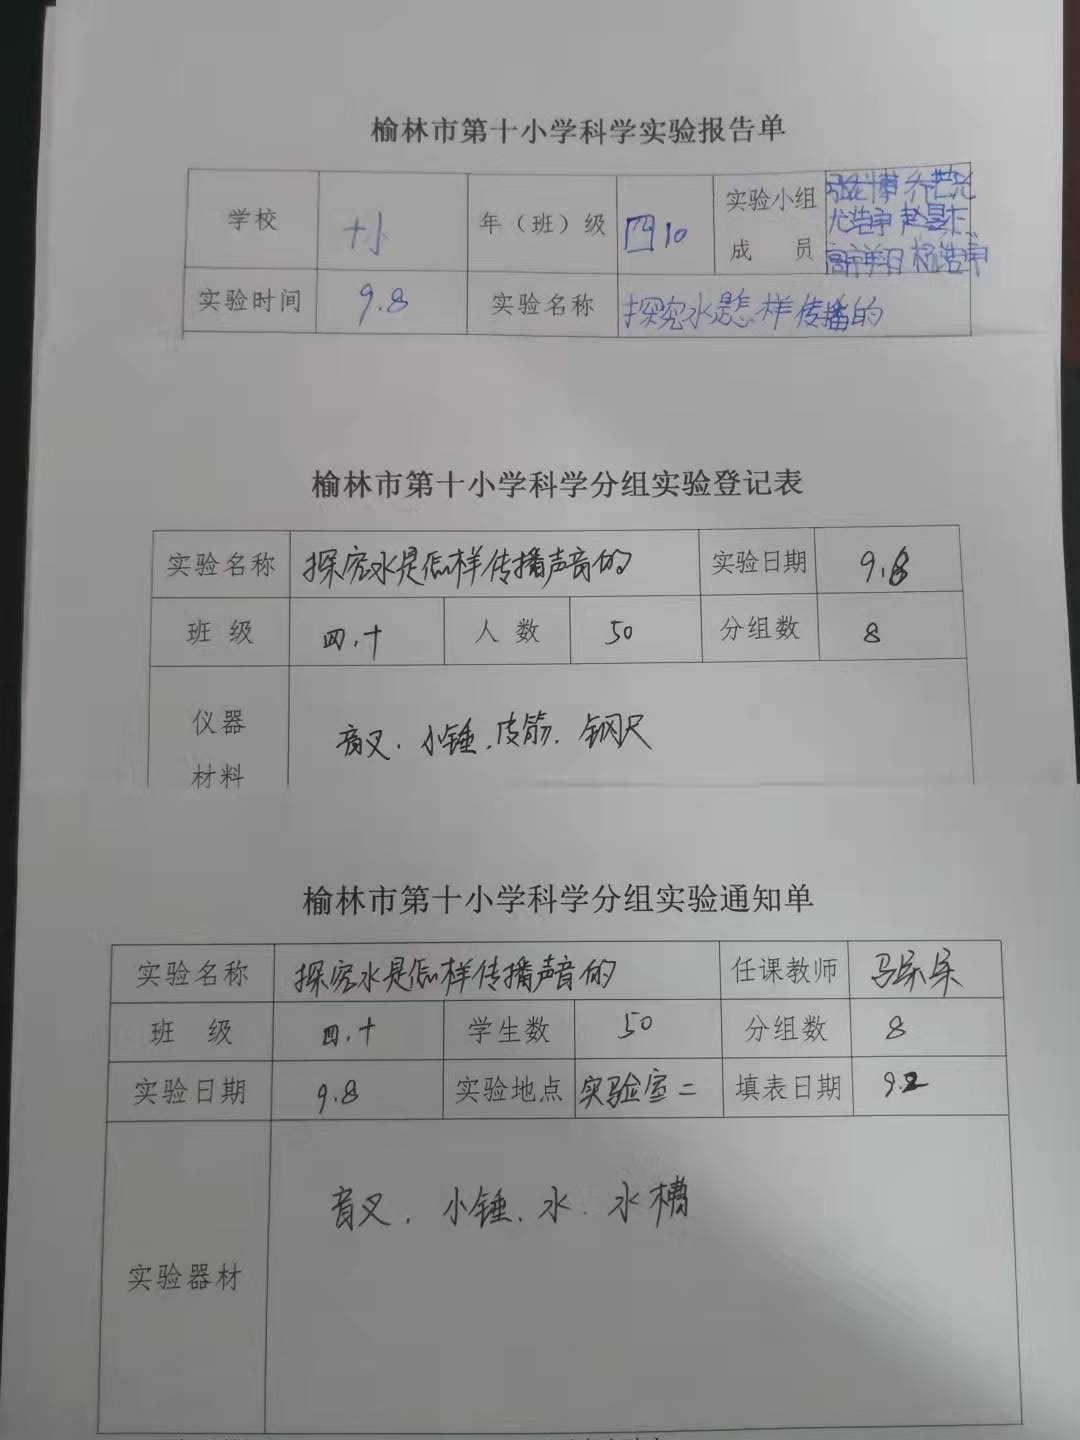 榆林市第十小学科学实验报告单
学校 十小 年（班）级 四10 实验小组成 员
实验时间 9.8 实验名称 探究水是怎样传播的
榆林市第十小学科学分组实验登记表
实验名称 探究水是怎样传播声音的 实验日期 9.8
班 级 四.十 人 数 50 分组数 8
仪器 音叉.小锤.皮筋.钢尺
材料
榆林市第十小学科学分组实验通知单
实验名称 探究水是怎样传播声音的 任课教师
班 级 四.十 学生数 50 分组数 8
实验日期 9.8 实验地点 实验室二 填表日期 9.2
实验器材 音叉.小锤.水.水槽